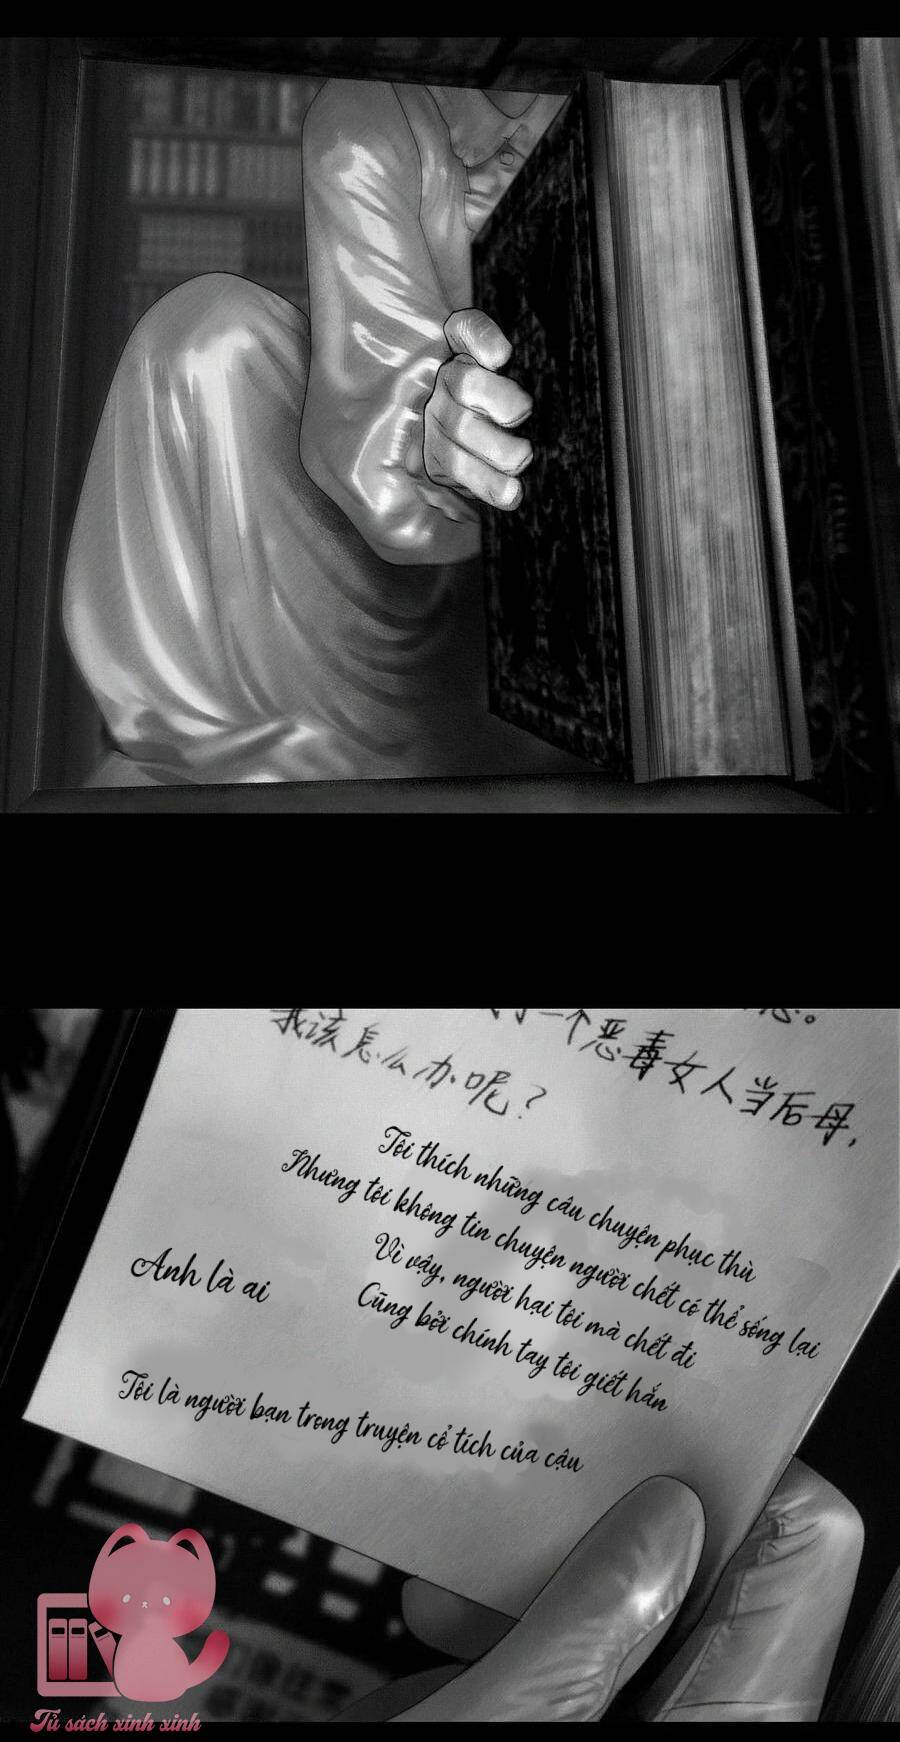 一个恶毒女人当后母,
我该怎么办呢?
Tôi thích những câu chuyện phục thù
Nhưng tôi không tin chuyện người chết có thể sống lại
Vì vậy, người hại tôi mà chết đi
Cũng bởi chính tay tôi giết hắn
Anh là ai
Tôi là người bạn trong truyện cổ tích của cậu
Tủ sách xinh xinh